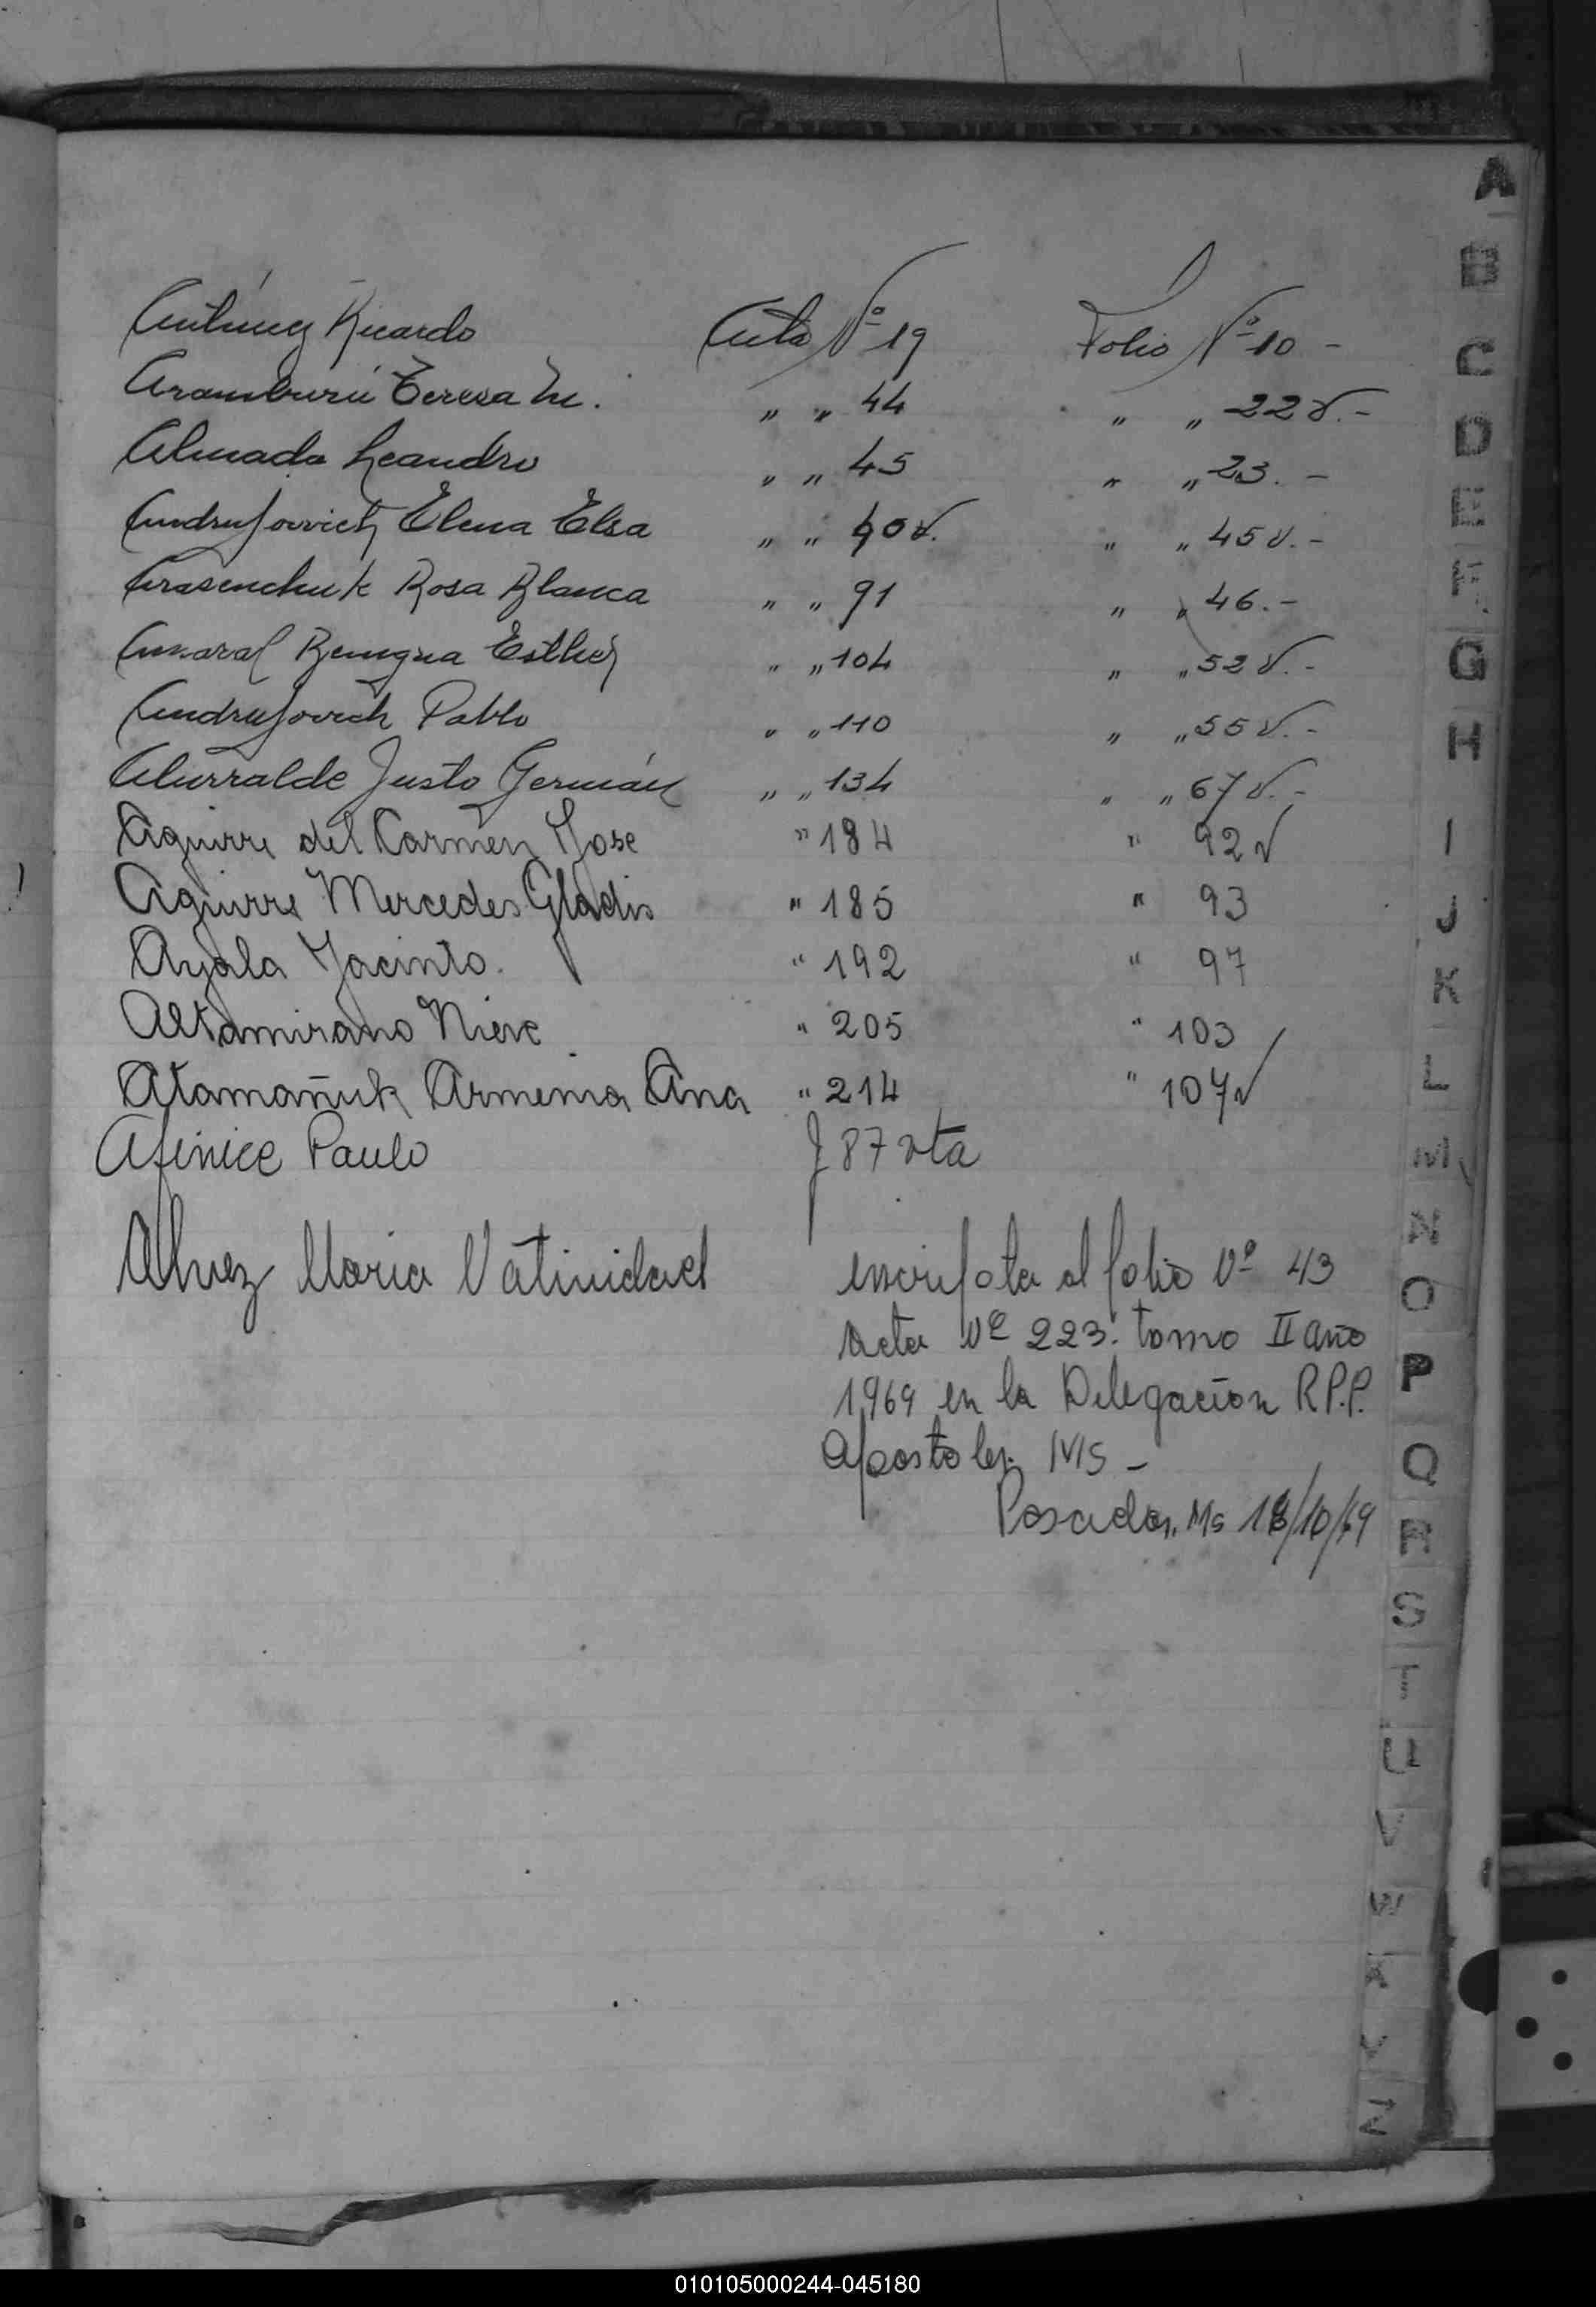 Antúnez Ricardo Acta Nº 19 Folio Nº 10 -
Aramburú Teresa M. " " 44 " " 22 v. -
Almada Leandro " " 45 " " 23. -
Andrujovich Elena Elsa " " 90 v. " " 45 v. -
Arasenchuk Rosa Blanca " " 91 " " 46. -
Amaral Benigna Esther " " 104 " " 52 v. -
Andrujovich Pablo " " 110 " " 55 v. -
Alurralde Justo Germán " " 134 " " 67 v. -
Aguirre del Carmen Jose " 184 " 92 v
Aguirre Mercedes Gladis " 185 " 93
Ayala Jacinto. " 192 " 97
Altamirano Nieve " 205 " 103
Atamañuk Armenia Ana " 214 " 107 v
Afinice Paulo f 87 vta
Alvez Maria Natividad inscripta al folio Nº 43
Acta Nº 223. tomo II año
1969 en la Delegación R.P.P.
Apostoles. Ms -
Posadas, Ms 18/10/69
A
B
C
D
E
F
G
H
I
J
K
L
M
N
O
P
Q
R
S
T
U
V
W
X
Y
Z
010105000244-045180